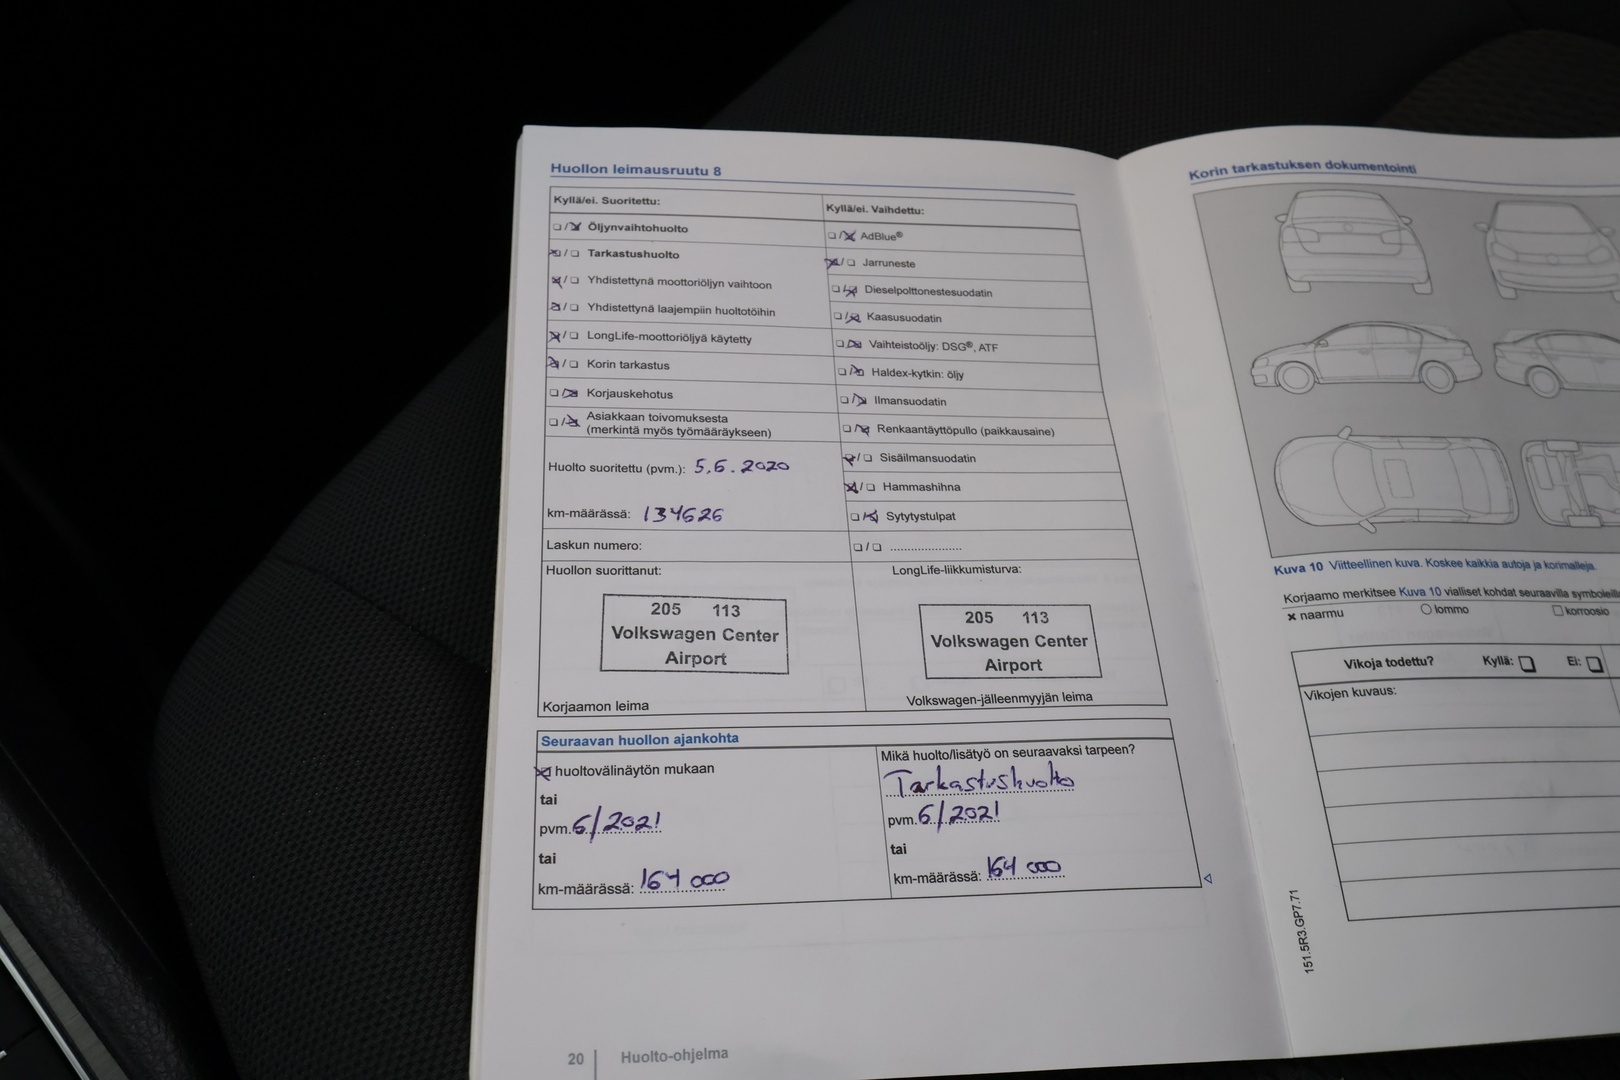 Huollon leimausruutu 8
Kyllä/ei. Suoritettu:
Öljynvaihtohuolto
Tarkastushuolto
Yhdistettynä moottoriöljyn vaihtoon
Yhdistettynä laajempiin huoltotöihin
LongLife-moottoriöljyä käytetty
Korin tarkastus
Korjauskehotus
Asiakkaan toivomuksesta
(merkintä myös työmääräykseen)
Huolto suoritettu (pvm.): 5.6.2020
km-määrässä: 134626
Laskun numero:
Huollon suorittanut:
205 113
Volkswagen Center
Airport
Korjaamon leima
Kyllä/ei. Vaihdettu:
AdBlue®
Jarruneste
Dieselpolttonestesuodatin
Kaasusuodatin
Vaihteistoöljy: DSG®, ATF
Haldex-kytkin: öljy
Ilmansuodatin
Renkaantäyttöpullo (paikkausaine)
Sisäilmansuodatin
Hammashihna
Sytytystulpat
LongLife-liikkumisturva:
205 113
Volkswagen Center
Airport
Volkswagen-jälleenmyyjän leima
Seuraavan huollon ajankohta
huoltovälinäytön mukaan
tai
pvm. 6/2021
tai
km-määrässä: 164 000
Mikä huolto/lisätyö on seuraavaksi tarpeen?
Tarkastushuolto
pvm. 6/2021
tai
km-määrässä: 164 000
20 Huolto-ohjelma
Korin tarkastuksen dokumentointi
Kuva 10 Viitteellinen kuva. Koskee kaikkia autoja ja korimalleja.
Korjaamo merkitsee Kuva 10 vialliset kohdat seuraavilla
naarmu lommo korroosio
Vikoja todettu? Kyllä: Ei:
Vikojen kuvaus:
151.5R3.GP7.71